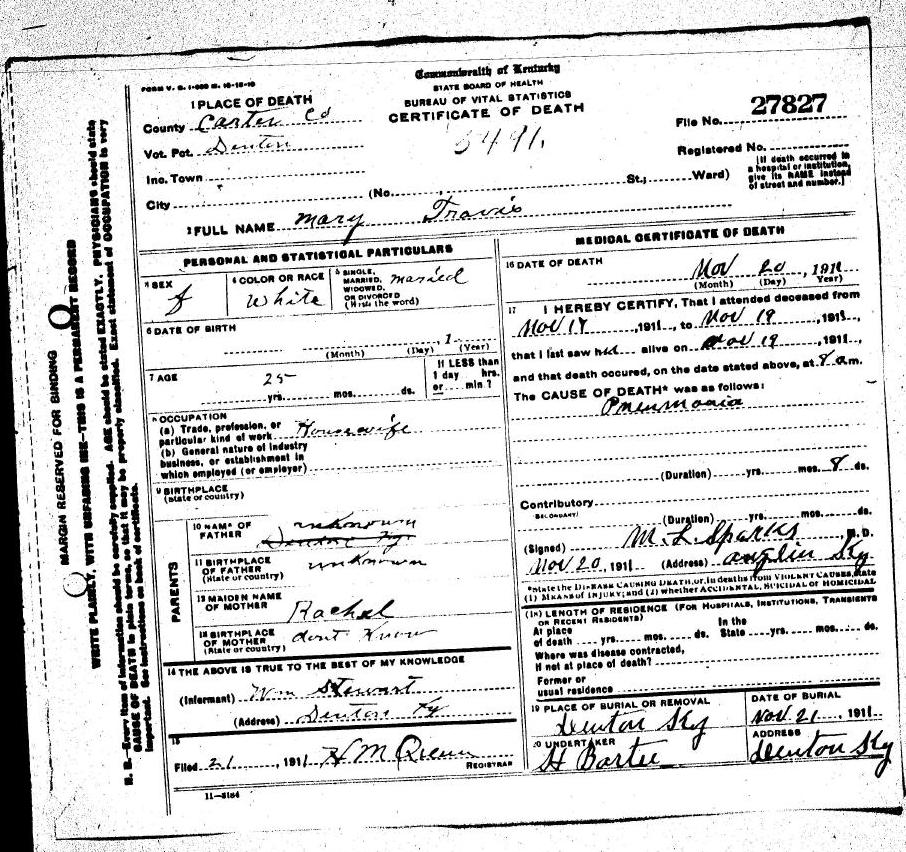 FORM V. S. 1-
Commonwealth of Kentucky
STATE BOARD OF HEALTH
BUREAU OF VITAL STATISTICS
CERTIFICATE OF DEATH
1 PLACE OF DEATH
County Carter Co
Vot. Pct. Denton
Inc. Town
City
(No. St.; Ward)
5491.
File No. 27827
Registered No.
[If death occurred in a hospital or institution, give its NAME instead of street and number.]
2 FULL NAME Mary Travis
PERSONAL AND STATISTICAL PARTICULARS
3 SEX
f
4 COLOR OR RACE
White
5 SINGLE, MARRIED, WIDOWED, OR DIVORCED (Write the word)
married
6 DATE OF BIRTH
, 1
(Month) (Day) (Year)
7 AGE
25
yrs. mos. ds.
If LESS than 1 day hrs. or min.?
8 OCCUPATION
(a) Trade, profession, or particular kind of work Housewife
(b) General nature of industry business, or establishment in which employed (or employer)
9 BIRTHPLACE
(State or country)
PARENTS
10 NAME OF FATHER
unknown
Denton Ky
11 BIRTHPLACE OF FATHER
(State or country)
unknown
12 MAIDEN NAME OF MOTHER
Rachel
13 BIRTHPLACE OF MOTHER
(State or country)
dont know
14 THE ABOVE IS TRUE TO THE BEST OF MY KNOWLEDGE
(Informant) Wm Stewart
(Address) Denton Ky
15
Filed 21, 1911 H M
REGISTRAR
11-3184
MEDICAL CERTIFICATE OF DEATH
16 DATE OF DEATH
Nov 20, 1911
(Month) (Day) Year)
17 I HEREBY CERTIFY, That I attended deceased from
Nov 17, 1911, to Nov 19, 1911,
that I last saw her alive on Nov 19, 1911,
and that death occured, on the date stated above, at 8 am.
The CAUSE OF DEATH* was as follows:
Pneumonia
(Duration) yrs. mos. 8 ds.
Contributory
SECONDARY)
(Duration) yrs. mos. ds.
(Signed) M. L. Sparks M. D.
Nov 20, 1911 (Address) Anglin Ky
*State the DISEASE CAUSING DEATH, or, in deaths from VIOLENT CAUSES, state
(1) MEANS OF INJURY; and (2) whether ACCIDENTAL, SUICIDAL or HOMICIDAL
(18) LENGTH OF RESIDENCE (FOR HOSPITALS, INSTITUTIONS, TRANSIENTS
OR RECENT RESIDENTS)
At place of death yrs. mos. ds. In the State yrs. mos. ds.
Where was disease contracted,
If not at place of death?
Former or
usual residence
19 PLACE OF BURIAL OR REMOVAL
Denton Ky
DATE OF BURIAL
Nov 21, 1911
20 UNDERTAKER
H Bartee
ADDRESS
Denton Ky
MARGIN RESERVED FOR BINDING
WRITE PLAINLY, WITH UNFADING INK—THIS IS A PERMANENT RECORD
N. B.—Every item of information should be carefully supplied. AGE should be stated EXACTLY. PHYSICIANS should state
CAUSE OF DEATH in plain terms, so that it may be properly classified. Exact statement of OCCUPATION is very
important. See instructions on back of certificate.